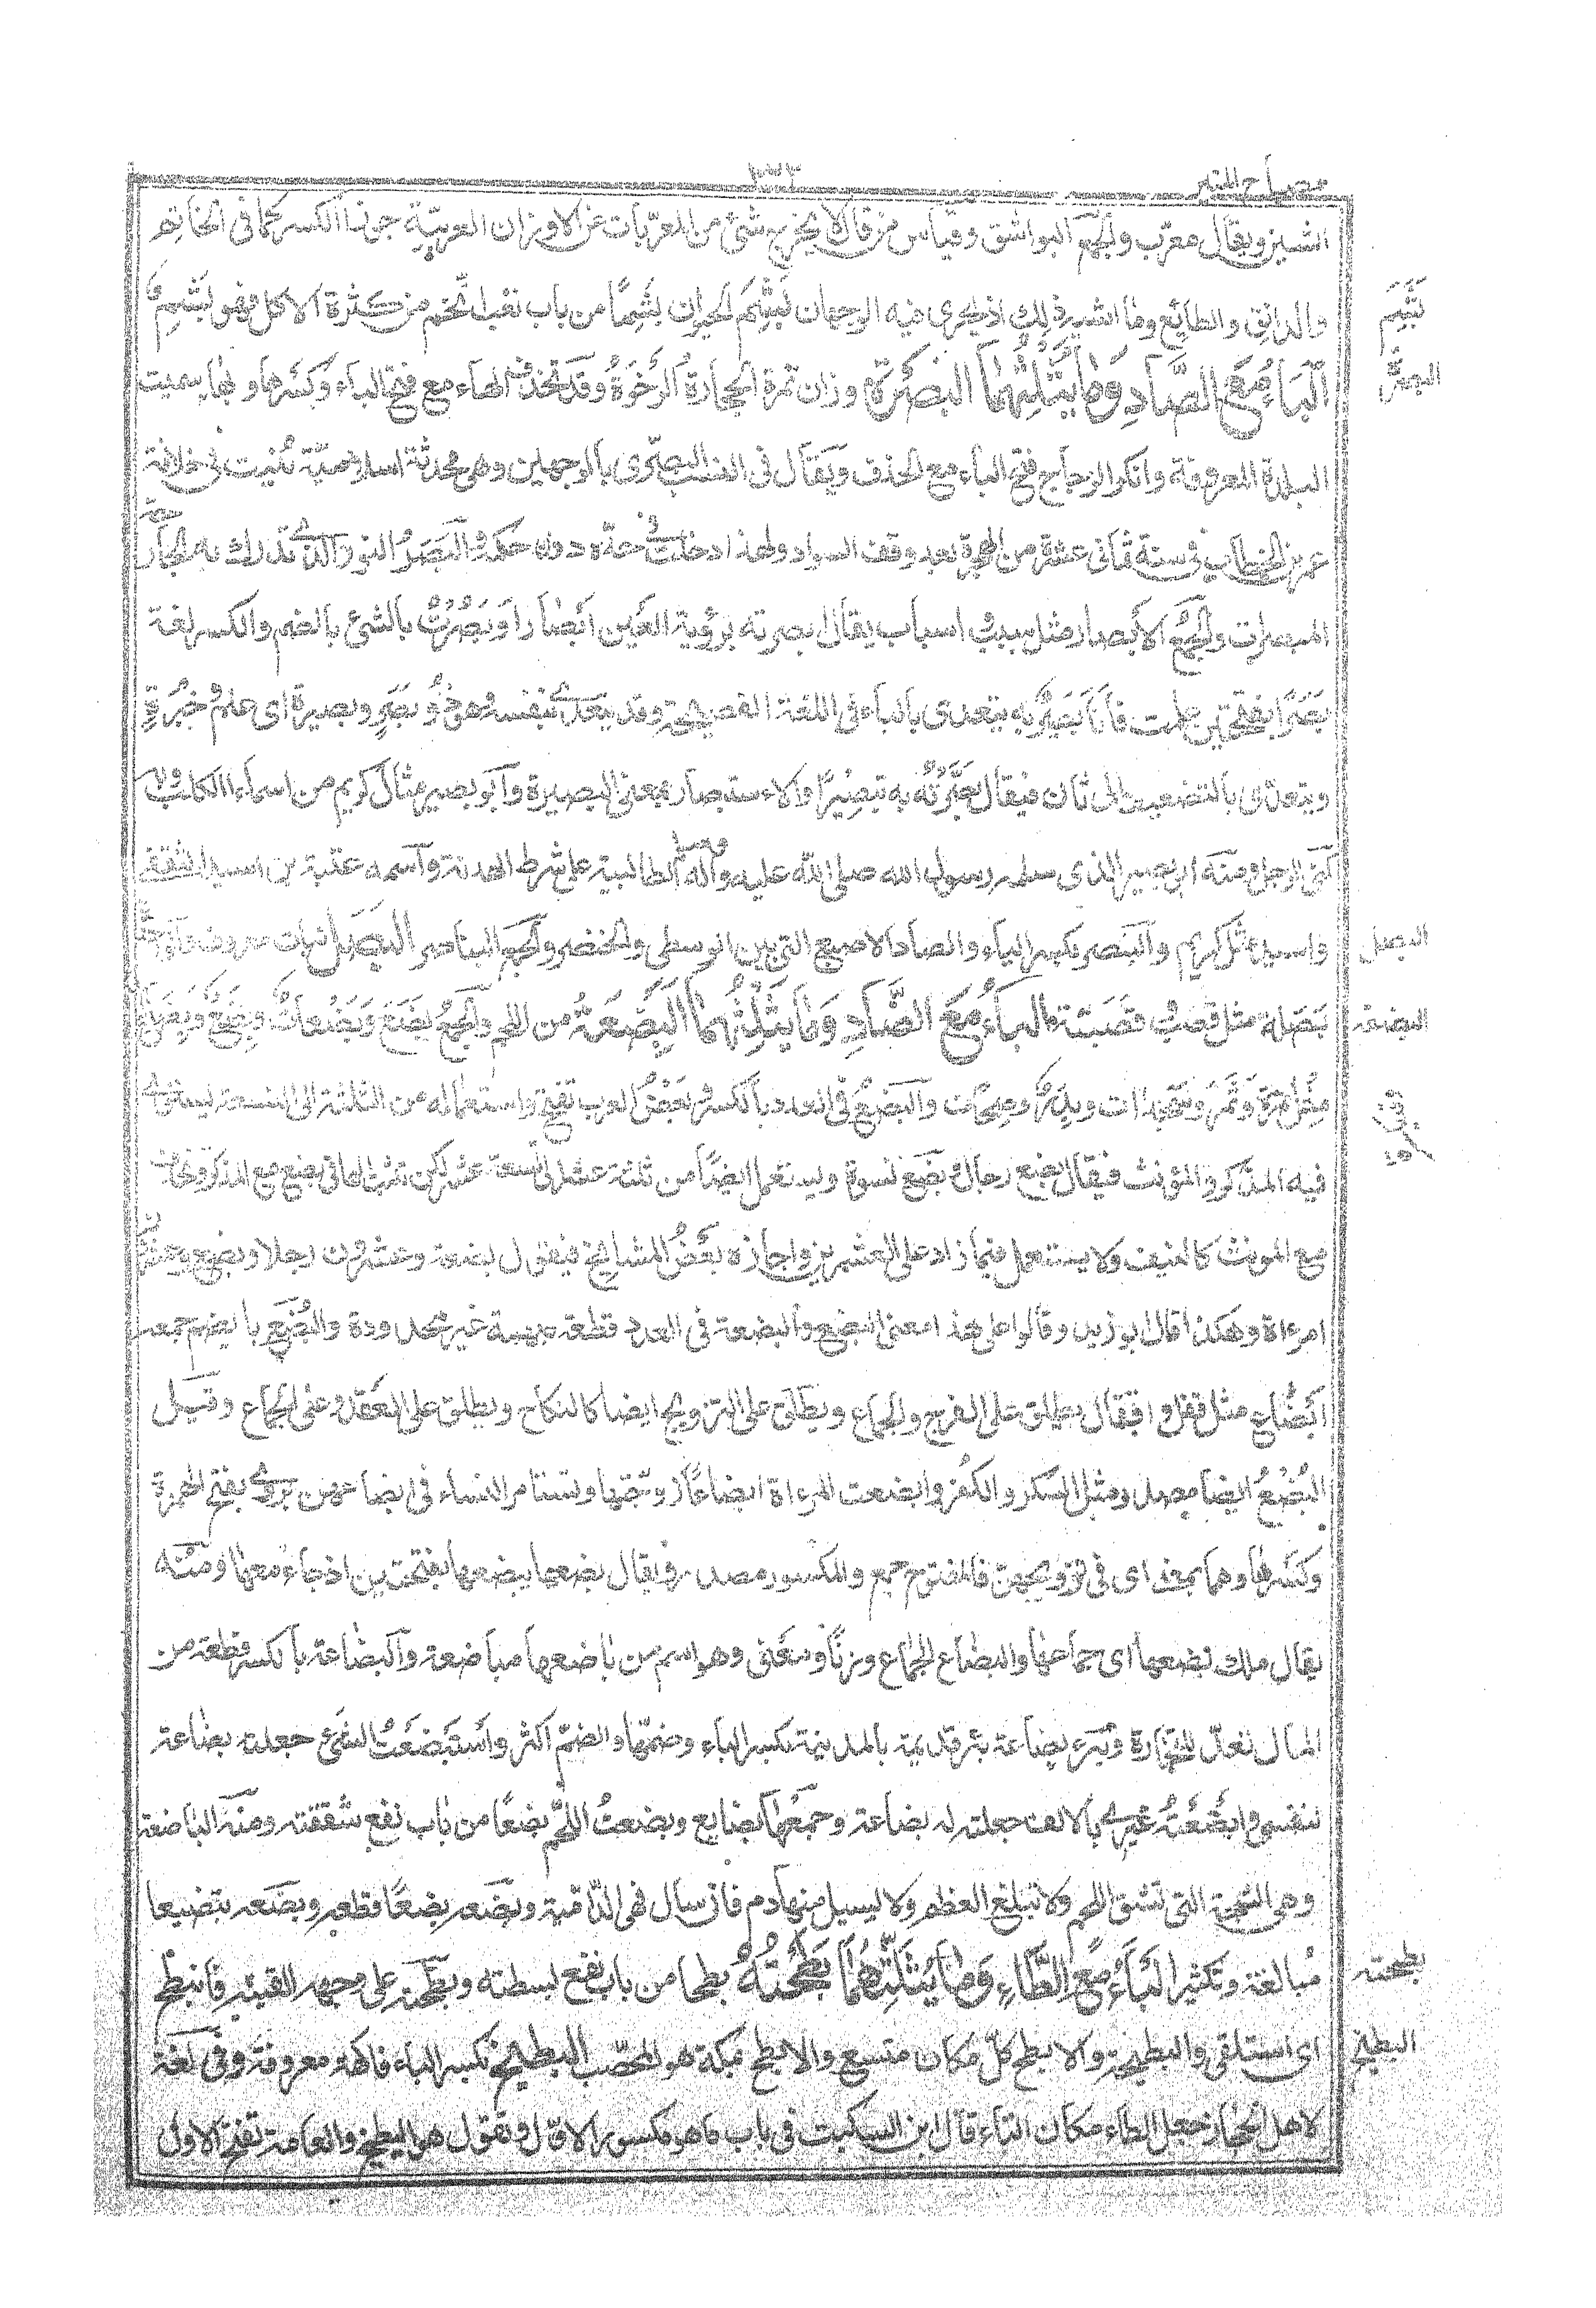 مصباح المنير
الشين ويقال معرّب والجمع البواشق وقياس من قال لا يخرج شئ من المعرّبات عن الاوزان العربيّة جوز الكسر كما في الخاتم
والدانق والطابع وما اشبه ذلك اذ يجرى فيه الوجهان بَشِمَ الحيوان بَشَمًا من باب تعب اتّخم من كثرة الاكل فهو بَشِمٌ
بَشِمَ
اَلْبَاءُ مَعَ الصَّادِ وَمَا يَثْلِثُهُمَا البَصْرَةُ وزان تمرة الحجارة الرَّخوَةُ وقد تحذف الهاء مع فتح الباء وكسرها وبها سميت
البصرة
البلدة المعروفة وانكر الزجاج فتح الباء مع الحذف ويقال فى النسب البصرى بالوجهين وهى محدثة اسلاميّة بُنيت فى خلافة
عمر بن الخطاب فى سنة ثمانى عشرة من الهجرة بعد وقف السواد ولهذا دخلت فى حدّه دون حكمه والبَصَرُ النور الذى تدرك به الجارحة
المبصرات والجمع الابصار مثل سبب واسباب يقال بصرته برؤية العين ابصارا وبَصُرْتُ بالشئ بالضم والكسر لغة
بَصَرًا بفتحتين علمت فأنا بَصِيرٌ به يتعدى بالباء فى اللغة الفصيحة وقد يتعدى بنفسه وهو ذو بَصَرٍ وبصيرة اى علم وخبرة
ويتعدّى بالتضعيف الى ثان فيقال بَصَّرْتُهُ به تبصيرًا والاستبصار بمعنى البصيرة وابو بصير مثال كريم من اسماء الكلب وبه
كنى الرجل ومنه ابو بصير الذى سلمه رسول الله صلى الله عليه وآله وسلم لطالبيه على شرط الهدنة واسمه عتبة بن اسيد الثقفى
واسيد مثل كريم والبنصر بكسر الباء والصاد الاصبع التى بين الوسطى والخنصر والجمع البناصر البَصَلُ نبات معروف الواحدة
البصل
بَصَلة مثل قصب وقَصَبَة الباءُ مَعَ الضَّادِ وَمَا يَثْلِثُهُمَا البَضْعَةُ من اللحم والجمع بضع وبَضَعات وبِضَعٌ وبِضَاعٌ
البضعة
مثل تمرة وتَمْر وسَجَدات وبِدَر وصِحَاف والبضع فى العدد بالكسر وبَعْضُ العرب تفتح واستعماله من الثلثة الى التسعة يستوى
فيه المذكر والمؤنث فيقال بضع رجال وبضع نسوة ويستعمل ايضًا من ثلثة عشر الى تسعة عشر لكن تثبت الهاء فى بضع مع المذكر وتحذف
مع المونث كالنيف ولا يستعمل فيما زاد على العشرين واجازه بَعْضُ المشايخ فيقول بضعة وعشرون رجلا وبضع وعشرون
امراة وهكذا قال ابو زيد وقالوا على هذا معنى البضع والبضعة فى العدد قطعة مبهمة غير محدودة والبُضع بالضم جمعه
اَبضاع مثل قفل واقفال يطلق على الفرج والجماع ويطلق على التزويج ايضا كالنكاح ويطلق على العقد وعلى الجماع وقيل
البُضْعُ ايضا مصدر مثل السكر والكفر وابضعت المرءاة ابضاعًا زوّجتها وتستامر النساء فى ابضاعهن يروى بفتح الهمزة
وكسرها وهما بمعنى اى فى تزويجهن فالمفتوح جمع والمكسور مصدر ويقال بضعها يبضعها بفتحتين اذا جامعها ومنه
يقال ملك بضعها اى جماعها والبضاع الجماع وزنًا ومعنى وهو اسم من باضعها مباضعة والبضاعة بالكسر قطعة من
المال تعدّ للتجارة وبئر بضاعة بئر قديمة بالمدينة بكسر الباء وضمّها والضمّ اكثر واستبضعتُ الشئ جعلته بضاعة
لنفسى وابضعتُه غيرى بالالف جعلته له بضاعة وجمعها بضايع وبضعتُ اللحم بضعًا من باب نفع شققته ومنه الباضعة
وهى الشجّة التى تشق اللحم ولا تبلغ العظم ولا يسيل منها دم فان سال فهى الدّامية وبضعه بضعًا قطعه وبضّعه تبضيعا
مبالغة وتكثير البَاءُ مَعَ الطَّاءِ وَمَا يُثَلِّثُهُمَا بَطَحْتُهُ بطحا من باب نفع بسطته وبطحته على وجهه القيته فانبطح
بطحته
اى استلقى والبطيحة والابطح كلّ مكان متسع والابطح بمكة هو المحصّب البطيخ بكسر الباء فاكهة معروفة وفى لغة
البطيخ
لاهل الحجاز جعل الطاء مكان الباء قال ابن السكيت فى باب ما هو مكسور الاوّل وتقول هو البطيخ والعامة تفتح الاول